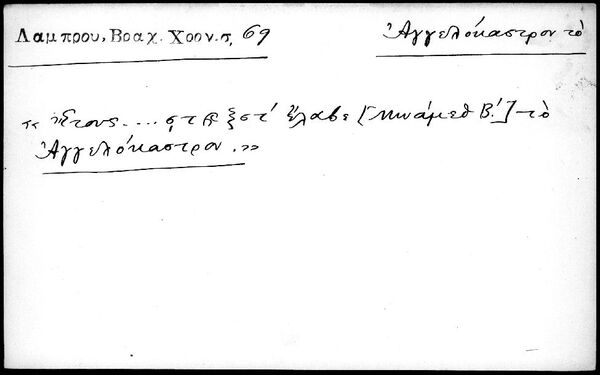 Λαμπρου, Βραχ. Χρον. σ, 69
Ἀγγελόκαστρον τὸ
«Ἔτους .... ςτ ξστʹ ἔλαβε [Μωάμεθ Βʹ.] τὸ
Ἀγγελόκαστρον.»